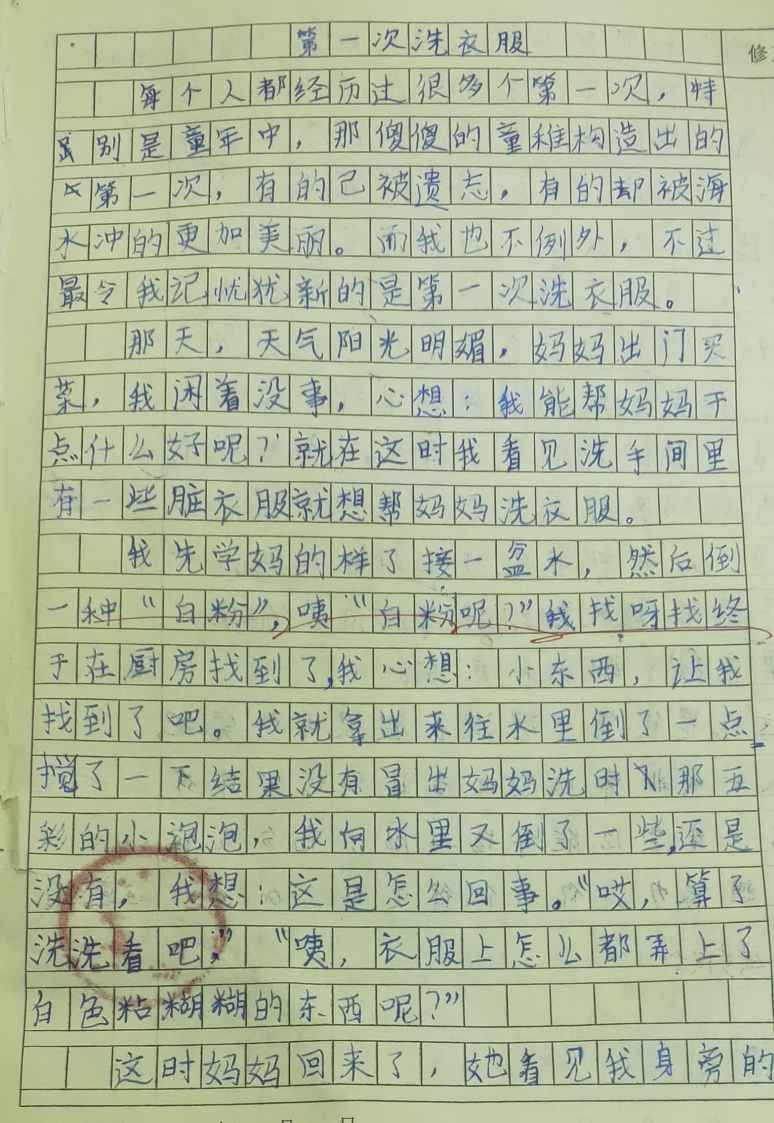 第一次洗衣服
修
每个人都经历过很多个第一次，特
别是童年中，那傻傻的童稚构造出的
第一次，有的已被遗忘，有的却被海
水冲的更加美丽。而我也不例外，不过
最令我记忧犹新的是第一次洗衣服。
那天，天气阳光明媚，妈妈出门买
菜，我闲着没事，心想：我能帮妈妈干
点什么好呢？就在这时我看见洗手间里
有一些脏衣服就想帮妈妈洗衣服。
我先学妈的样了接一盆水，然后倒
一种“白粉”，咦“白粉呢？”我找呀找终
于在厨房找到了，我心想：小东西，让我
找到了吧。我就拿出来往水里倒了一点，
搅了一下结果没有冒出妈妈洗时那五
彩的小泡泡，我向水里又倒了一些，还是
没有，我想：这是怎么回事。“哎，算了
洗洗看吧。”“咦，衣服上怎么都弄上了
白色粘糊糊的东西呢？”
这时妈妈回来了，她看见我身旁的